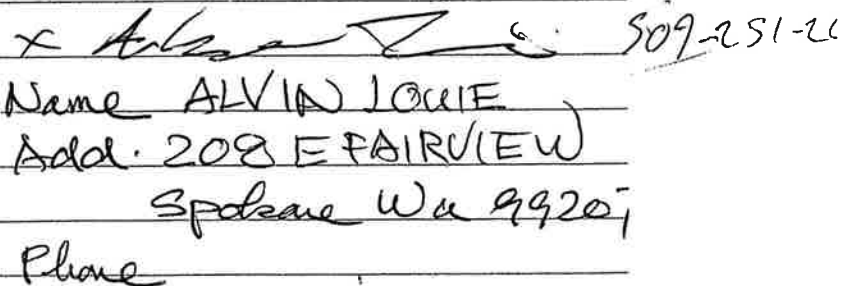 x 509-251-21
Name ALVIN LOUIE
Add. 208 E FAIRVIEW
Spokane Wa 99207
Phone